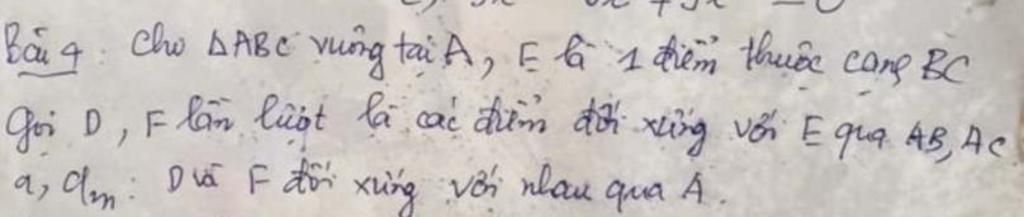 Bài 4: Cho ΔABC vuông tại A, E là 1 điểm thuộc cạng BC
gọi D, F lần lượt là các điểm đối xứng với E qua AB, AC
a, Cm: D và F đối xứng với nhau qua A.